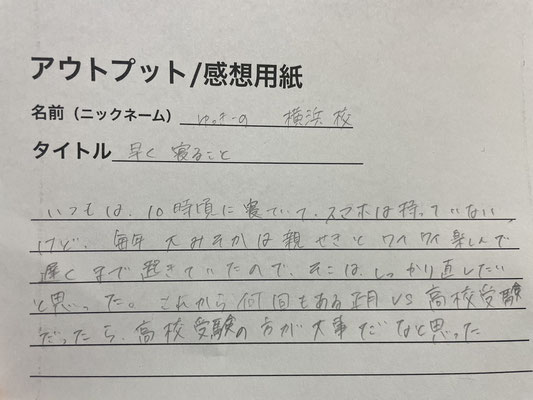 アウトプット/感想用紙
名前（ニックネーム） ゆっきーの 横浜校
タイトル 早く寝ること
いつもは、10時頃に寝ていて、スマホは持っていない
けど、毎年大みそかは親せきとワイワイ楽しんで
遅くまで起きていたので、そこは、しっかり直したい
と思った。これから何回もある正月VS高校受験
だったら、高校受験の方が大事だなと思った